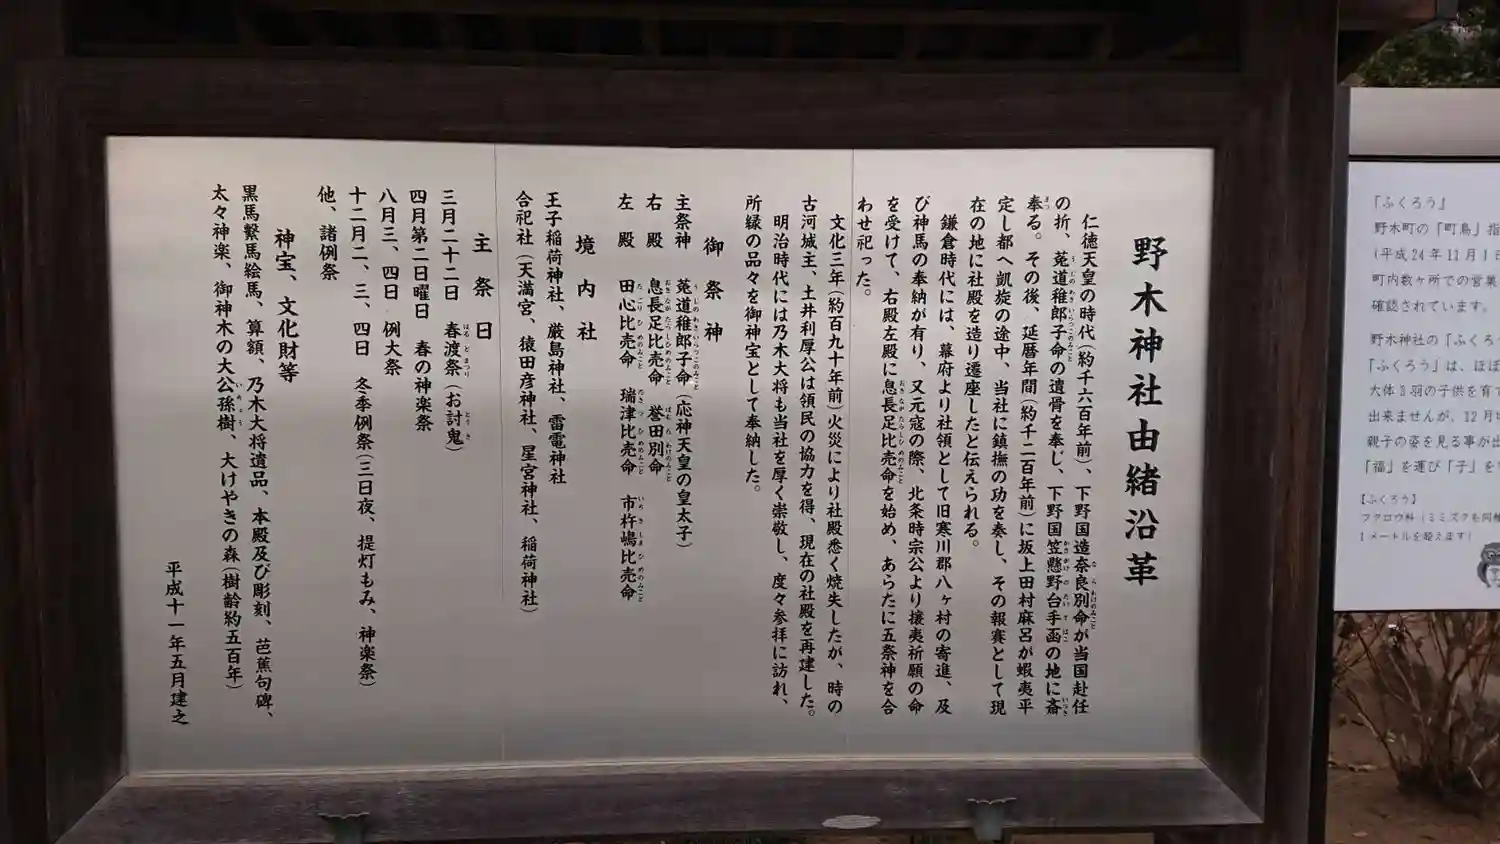 野木神社由緒沿革
仁徳天皇の時代（約千六百年前）、下野国造奈良別命が当国赴任
の折、莵道稚郎子命の遺骨を奉じ、下野国笠懸野台手函の地に斎
奉る。その後、延暦年間（約千二百年前）に坂上田村麻呂が蝦夷平
定し都へ凱旋の途中、当社に鎮撫の功を奏し、その報賽として現
在の地に社殿を造り遷座したと伝えられる。
鎌倉時代には、幕府より社領として旧寒川郡八ヶ村の寄進、及
び神馬の奉納が有り、又元寇の際、北条時宗公より攘夷祈願の命
を受けて、右殿左殿に息長足比売命を始め、あらたに五祭神を合
わせ祀った。
文化三年（約百九十年前）火災により社殿悉く焼失したが、時の
古河城主、土井利厚公は領民の協力を得、現在の社殿を再建した。
明治時代には乃木大将も当社を厚く崇敬し、度々参拝に訪れ、
所縁の品々を御神宝として奉納した。
御祭神
主祭神　莵道稚郎子命（応神天皇の皇太子）
右殿　息長足比売命　誉田別命
左殿　田心比売命　瑞津比売命　市杵嶋比売命
境内社
王子稲荷神社、厳島神社、雷電神社
合祀社（天満宮、猿田彦神社、星宮神社、稲荷神社）
主祭日
三月二十二日　春渡祭（お討鬼）
四月第二日曜日　春の神楽祭
八月三、四日　例大祭
十二月二、三、四日　冬季例祭（三日夜、提灯もみ、神楽祭）
他、諸例祭
神宝、文化財等
黒馬繋馬絵馬、算額、乃木大将遺品、本殿及び彫刻、芭蕉句碑、
太々神楽、御神木の大公孫樹、大けやきの森（樹齢約五百年）
平成十一年五月建之
「ふくろう」
野木町の「町鳥」指
（平成24年11月1日
町内数ヶ所での営巣
確認されています。
野木神社の「ふくろ
「ふくろう」は、ほぼ
大体3羽の子供を育
出来ませんが、12月
親子の姿を見る事が出
「福」を運び「子」を
【ふくろう】
フクロウ科（ミミズクも同
1メートルを超えます）